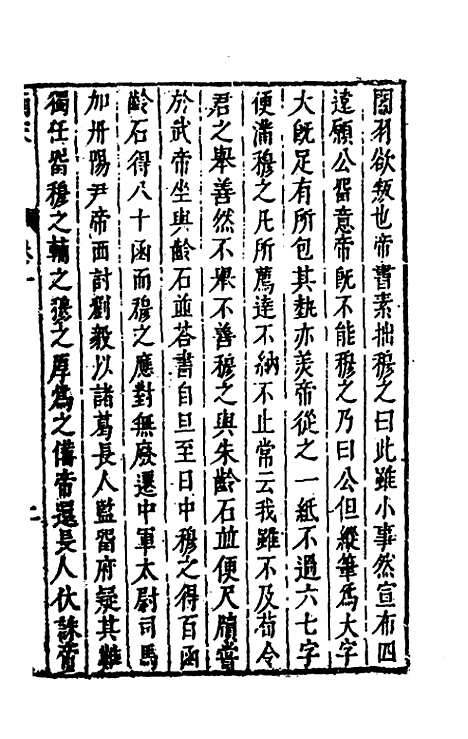 閣㓨欲叛也帝書素拙穆之曰此雖小事然宣布四
遠願公畱意帝旣不能穆之乃曰公但縱筆爲大字
大旣足有所包其埶亦美帝從之一紙不過六七字
便滿穆之凡所薦達不納不止常云我雖不及荀令
君之舉善然不舉不善穆之與朱齡石竝便尺牘嘗
於武帝坐與齡石竝荅書自旦至日中穆之得百函
齡石得八十函而穆之應對無廢遷中軍太尉司馬
加丹陽尹帝西討劉毅以諸葛長人監畱府疑其難
獨任畱穆之輔之穆之厚爲之備帝還長人伏誅帝
二